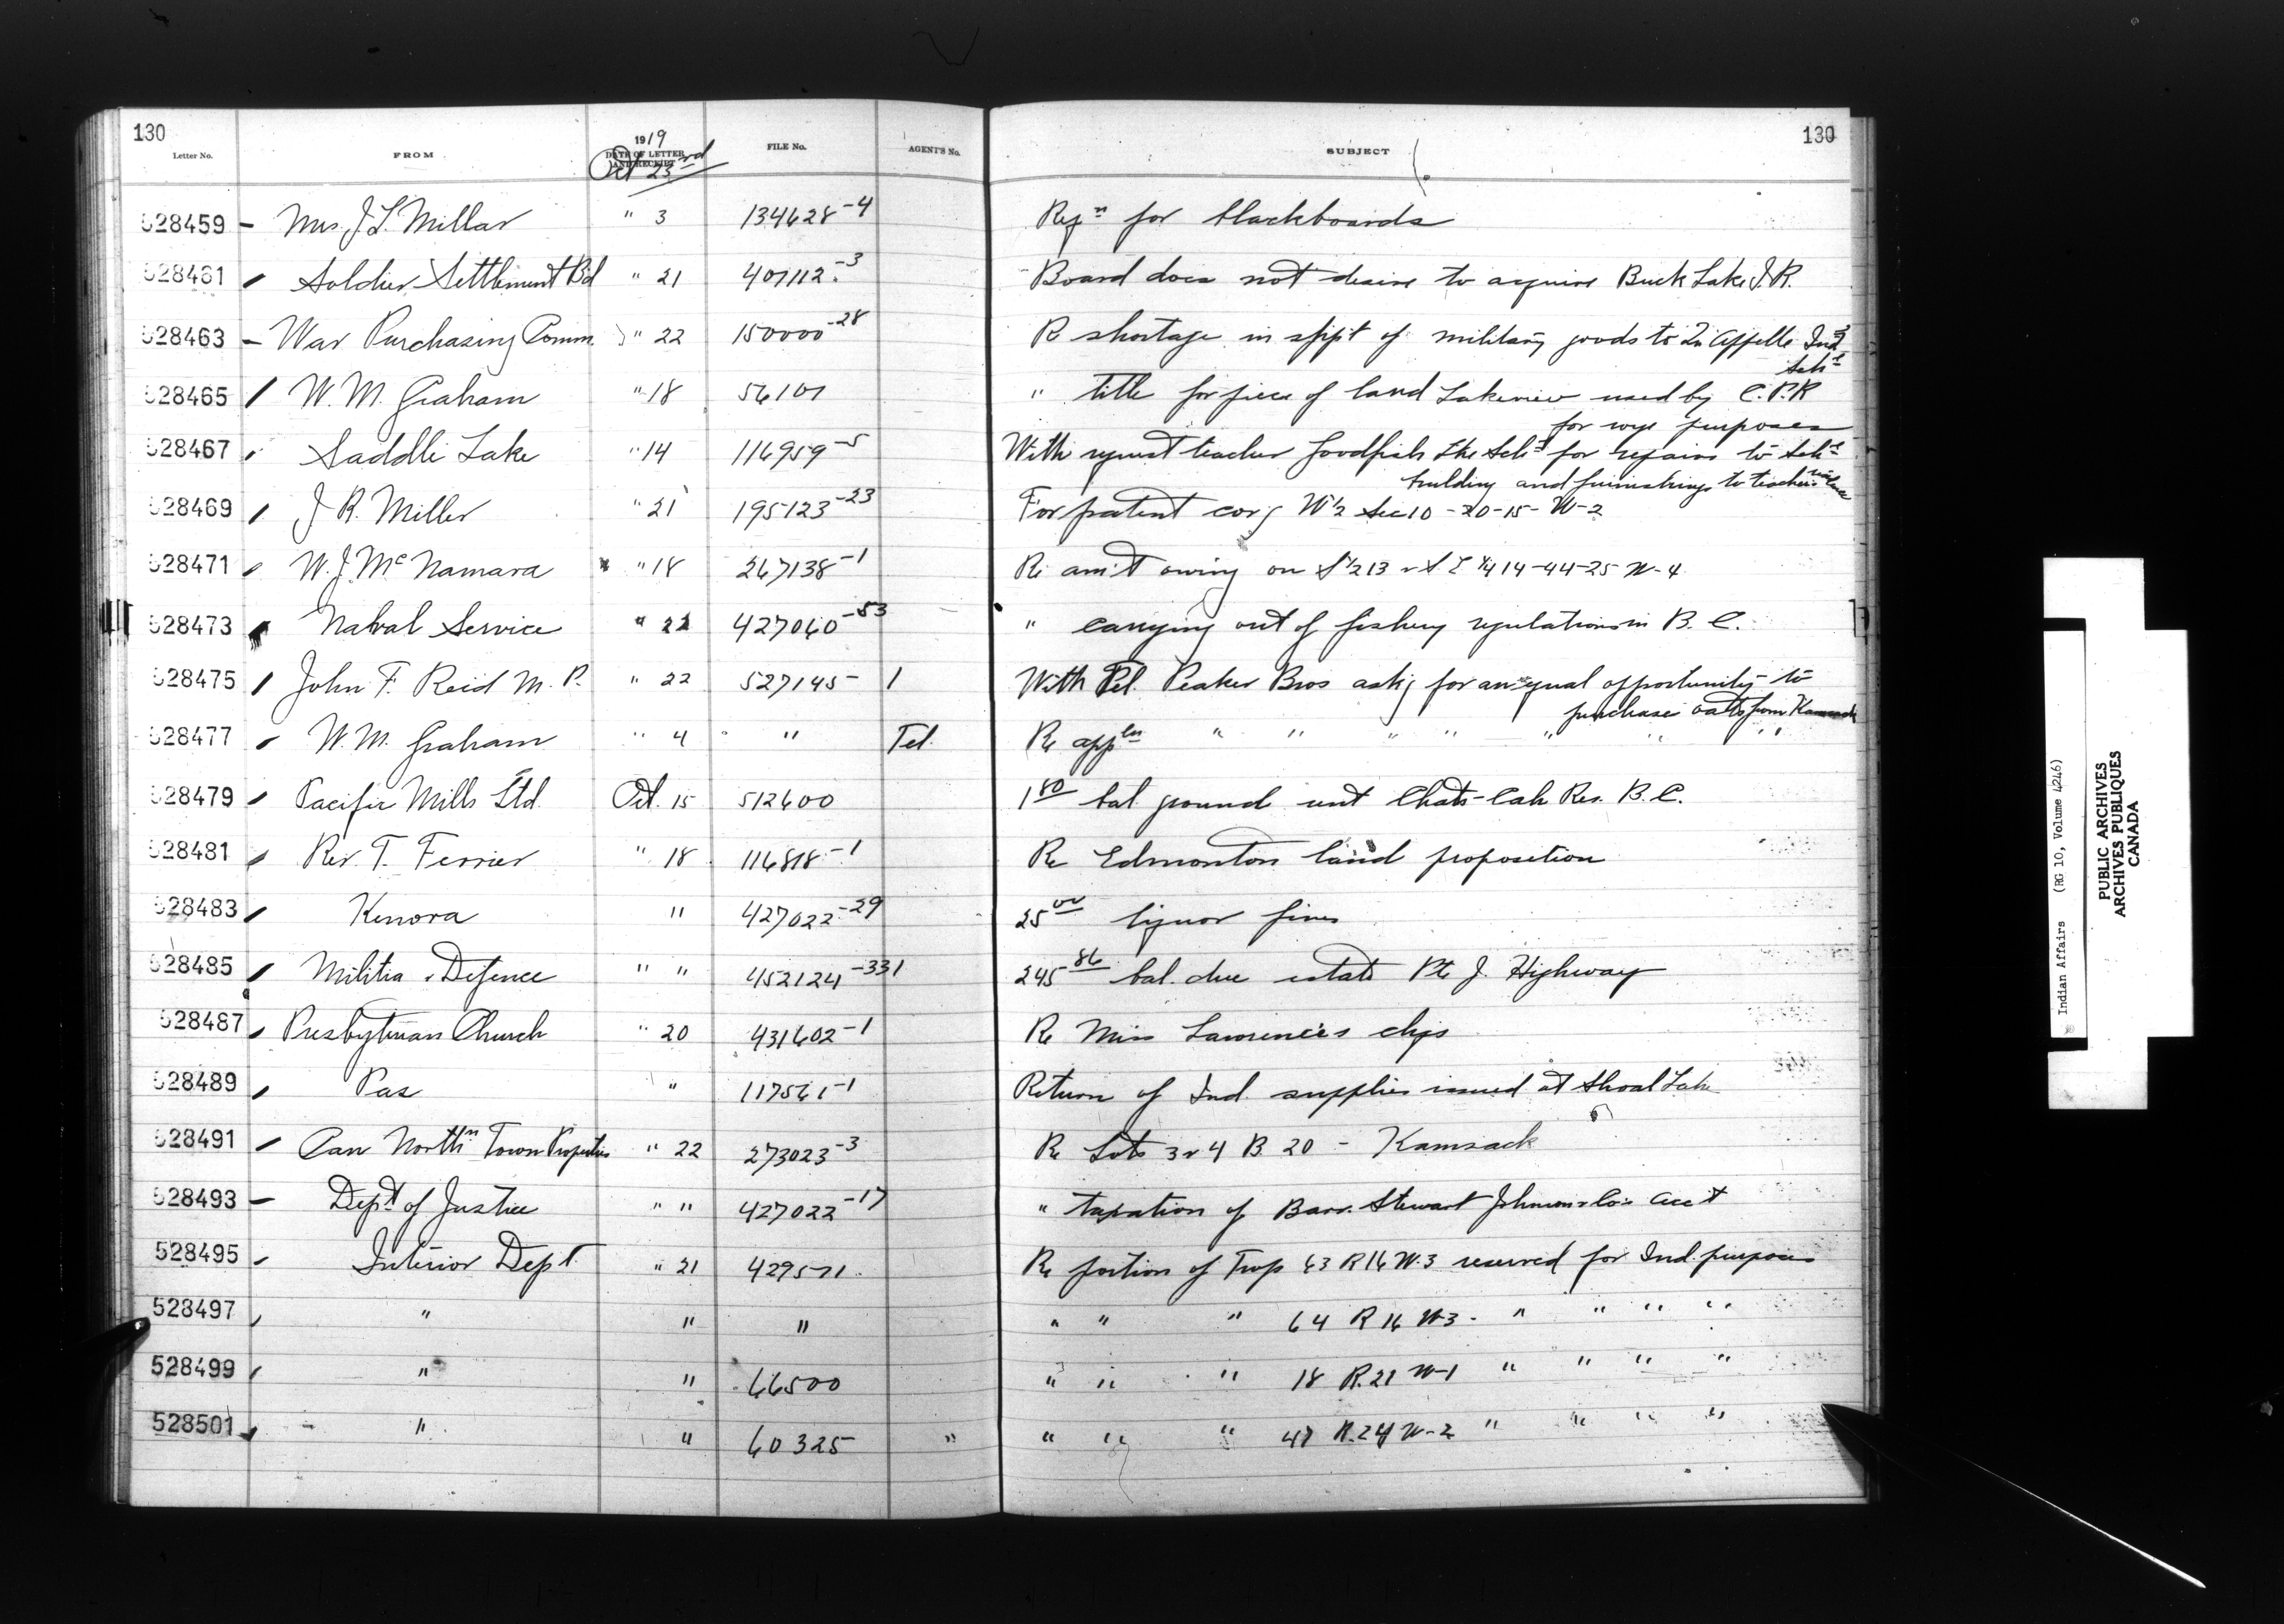 130
130
Letter No.
FROM
1919
DATE OF LETTER AND RECEIPT
Oct 23rd
FILE No.
AGENT'S No.
SUBJECT
528459 – Mrs. J. L. Millar " 3 134628-4 Reqn for blackboards
528461 Soldier Settlement Bd " 21 407112-3 Board does not desire to acquire Buck Lake I.R.
528463 – War Purchasing Comm. " 22 150000-28 Re shortage in shpt of military goods to Qu'Appelle Ind
Schl
528465 W. M. Graham " 18 56101 " title for piece of land Lakeview used by C.P.R
for wye purposes
528467 Saddle Lake " 14 116959-5 With request teacher Goodfish Lke Schl for repairs to Schl
building and furnishings to teachers
528469 J R. Miller " 21 195123-23 For patent covg W½ Sec 10-20-15-W-2
528471 W. J. McNamara " 18 267138-1 Re am't owing on S½ 13 & S E ¼ 14-44-25 W-4
528473 Naval Service " 22 427060-53 " carrying out of fishery regulations in B. C.
528475 John F. Reid M. P. " 22 527145-1 With Tel. Peaker Bros askg for an equal opportunity to
purchase oats from Kamsack
528477 W. M. Graham " 4 " Tel. Re appln " " " " " " "
528479 Pacific Mills Ltd. Oct. 15 512600 1 80 bal ground rent Chats-Cah Res. B. C.
528481 Rev. T. Ferrier " 18 116818-1 Re Edmonton land proposition
528483 Kenora " 427022-29 25 00 liquor fines
528485 Militia & Defence " " 452124-331 245 86 bal. due estate Pte J. Highway
528487 Presbyterian Church " 20 431602-1 Re Miss Lawrence's chqs
528489 Pas " 117561-1 Return of Ind. supplies issued at Shoal Lake
528491 Can Northn Town Properties " 22 273023-3 Re Lots 3 & 4 B. 20 – Kamsack
528493 – Dept of Justice " " 427022-17 " taxation of Barr. Stewart Johnson & Co's acct
528495 Interior Dept " 21 429571 Re portion of Twp 63 R 16 W.3 reserved for Ind. purposes
528497 " " " " " " 64 R 16 W-3 " " " "
528499 " " 66500 " " " 18 R.21 W-1 " " " "
528501 " " 60325 " " " " 47 R.24 W-2 " " " "
Indian Affairs (RG 10, Volume 4246)
PUBLIC ARCHIVES
ARCHIVES PUBLIQUES
CANADA